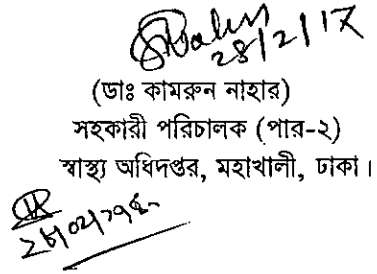 28/2/17
(ডাঃ কামরুন নাহার)
সহকারী পরিচালক (পার-২)
স্বাস্থ্য অধিদপ্তর, মহাখালী, ঢাকা।